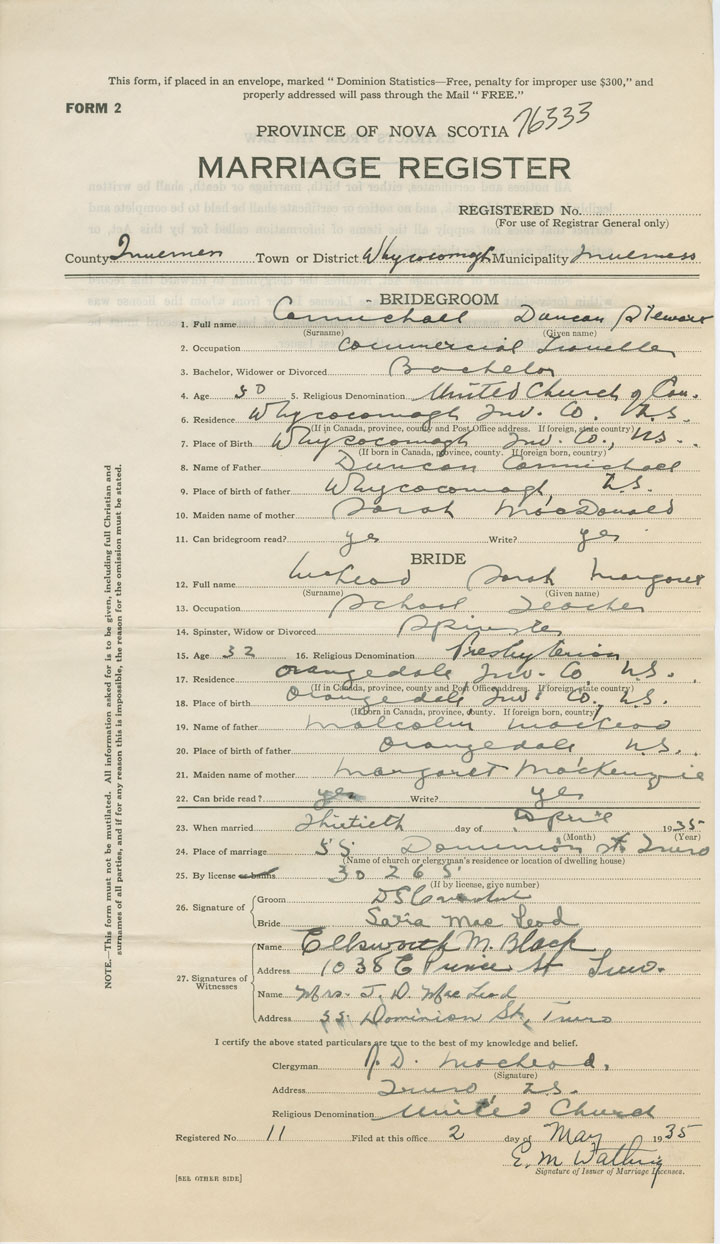 This form, if placed in an envelope, marked " Dominion Statistics—Free, penalty for improper use $300," and
properly addressed will pass through the Mail " FREE."
FORM 2
PROVINCE OF NOVA SCOTIA 76333
MARRIAGE REGISTER
REGISTERED No.
(For use of Registrar General only)
County Inverness Town or District Whycocomagh Municipality Inverness
BRIDEGROOM
1. Full name Carmichael Duncan Stewart
(Surname) (Given name)
2. Occupation Commercial Traveller
3. Bachelor, Widower or Divorced Bachelor
4. Age 50 5. Religious Denomination United Church of Can.
6. Residence Whycocomagh Inv. Co. N.S.
(If in Canada, province, county and Post Office address. If foreign, state country)
7. Place of Birth Whycocomagh Inv. Co., N.S.
(If born in Canada, province, county. If foreign born, country)
8. Name of Father Duncan Carmichael
9. Place of birth of father Whycocomagh N.S.
10. Maiden name of mother Sarah MacDonald
11. Can bridegroom read? yes Write? yes
BRIDE
12. Full name McLeod Sarah Margaret
(Surname) (Given name)
13. Occupation School Teacher
14. Spinster, Widow or Divorced Spinster
15. Age 32 16. Religious Denomination Presbyterian
17. Residence Orangedale Inv. Co. N.S.
(If in Canada, province, county and Post Office address. If foreign state country)
18. Place of birth Orangedale Inv. Co., N.S.
(If born in Canada, province, county. If foreign born, country)
19. Name of father Malcolm MacLeod
20. Place of birth of father Orangedale N.S.
21. Maiden name of mother Margaret MacKenzie
22. Can bride read? yes Write? yes
23. When married Thirtieth day of April 1935
(Month) (Year)
24. Place of marriage 55 Dominion St. Truro
(Name of church or clergyman's residence or location of dwelling house)
25. By license or banns 30265
(If by license, give number)
26. Signature of Groom D S
Bride Sara MacLeod
27. Signatures of Witnesses
Name Ellsworth M. Black
Address 1038 Prince St Truro.
Name Mrs. J. D. MacLeod
Address 55 Dominion St., Truro
I certify the above stated particulars are true to the best of my knowledge and belief.
Clergyman J. D. MacLeod.
(Signature)
Address Truro N.S.
Religious Denomination United Church
Registered No. 11 Filed at this office 2 day of May 1935
E. M.
Signature of Issuer of Marriage Licenses.
[SEE OTHER SIDE]
NOTE.—This form must not be mutilated. All information asked for is to be given, including full Christian and
surnames of all parties, and if for any reason this is impossible, the reason for the omission must be stated.